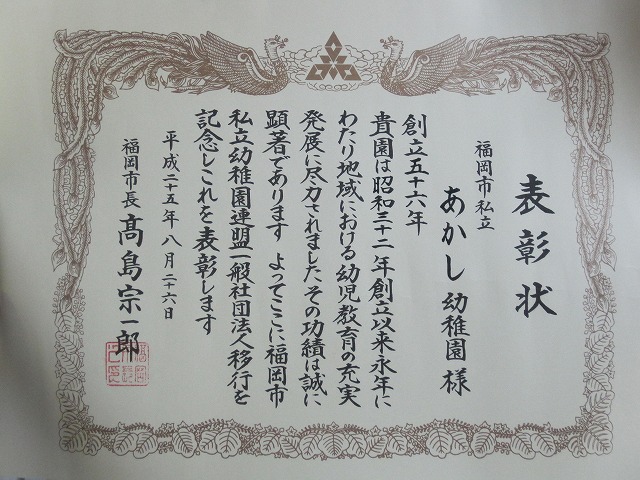 表彰状
福岡市私立
あかし幼稚園様
創立五十六年
貴園は昭和三十二年創立以来永年に
わたり地域における幼児教育の充実
発展に尽力されましたその功績は誠に
顕著であります よってここに福岡市
私立幼稚園連盟一般社団法人移行を
記念しこれを表彰します
平成二十五年八月二十六日
福岡市長 髙島宗一郎